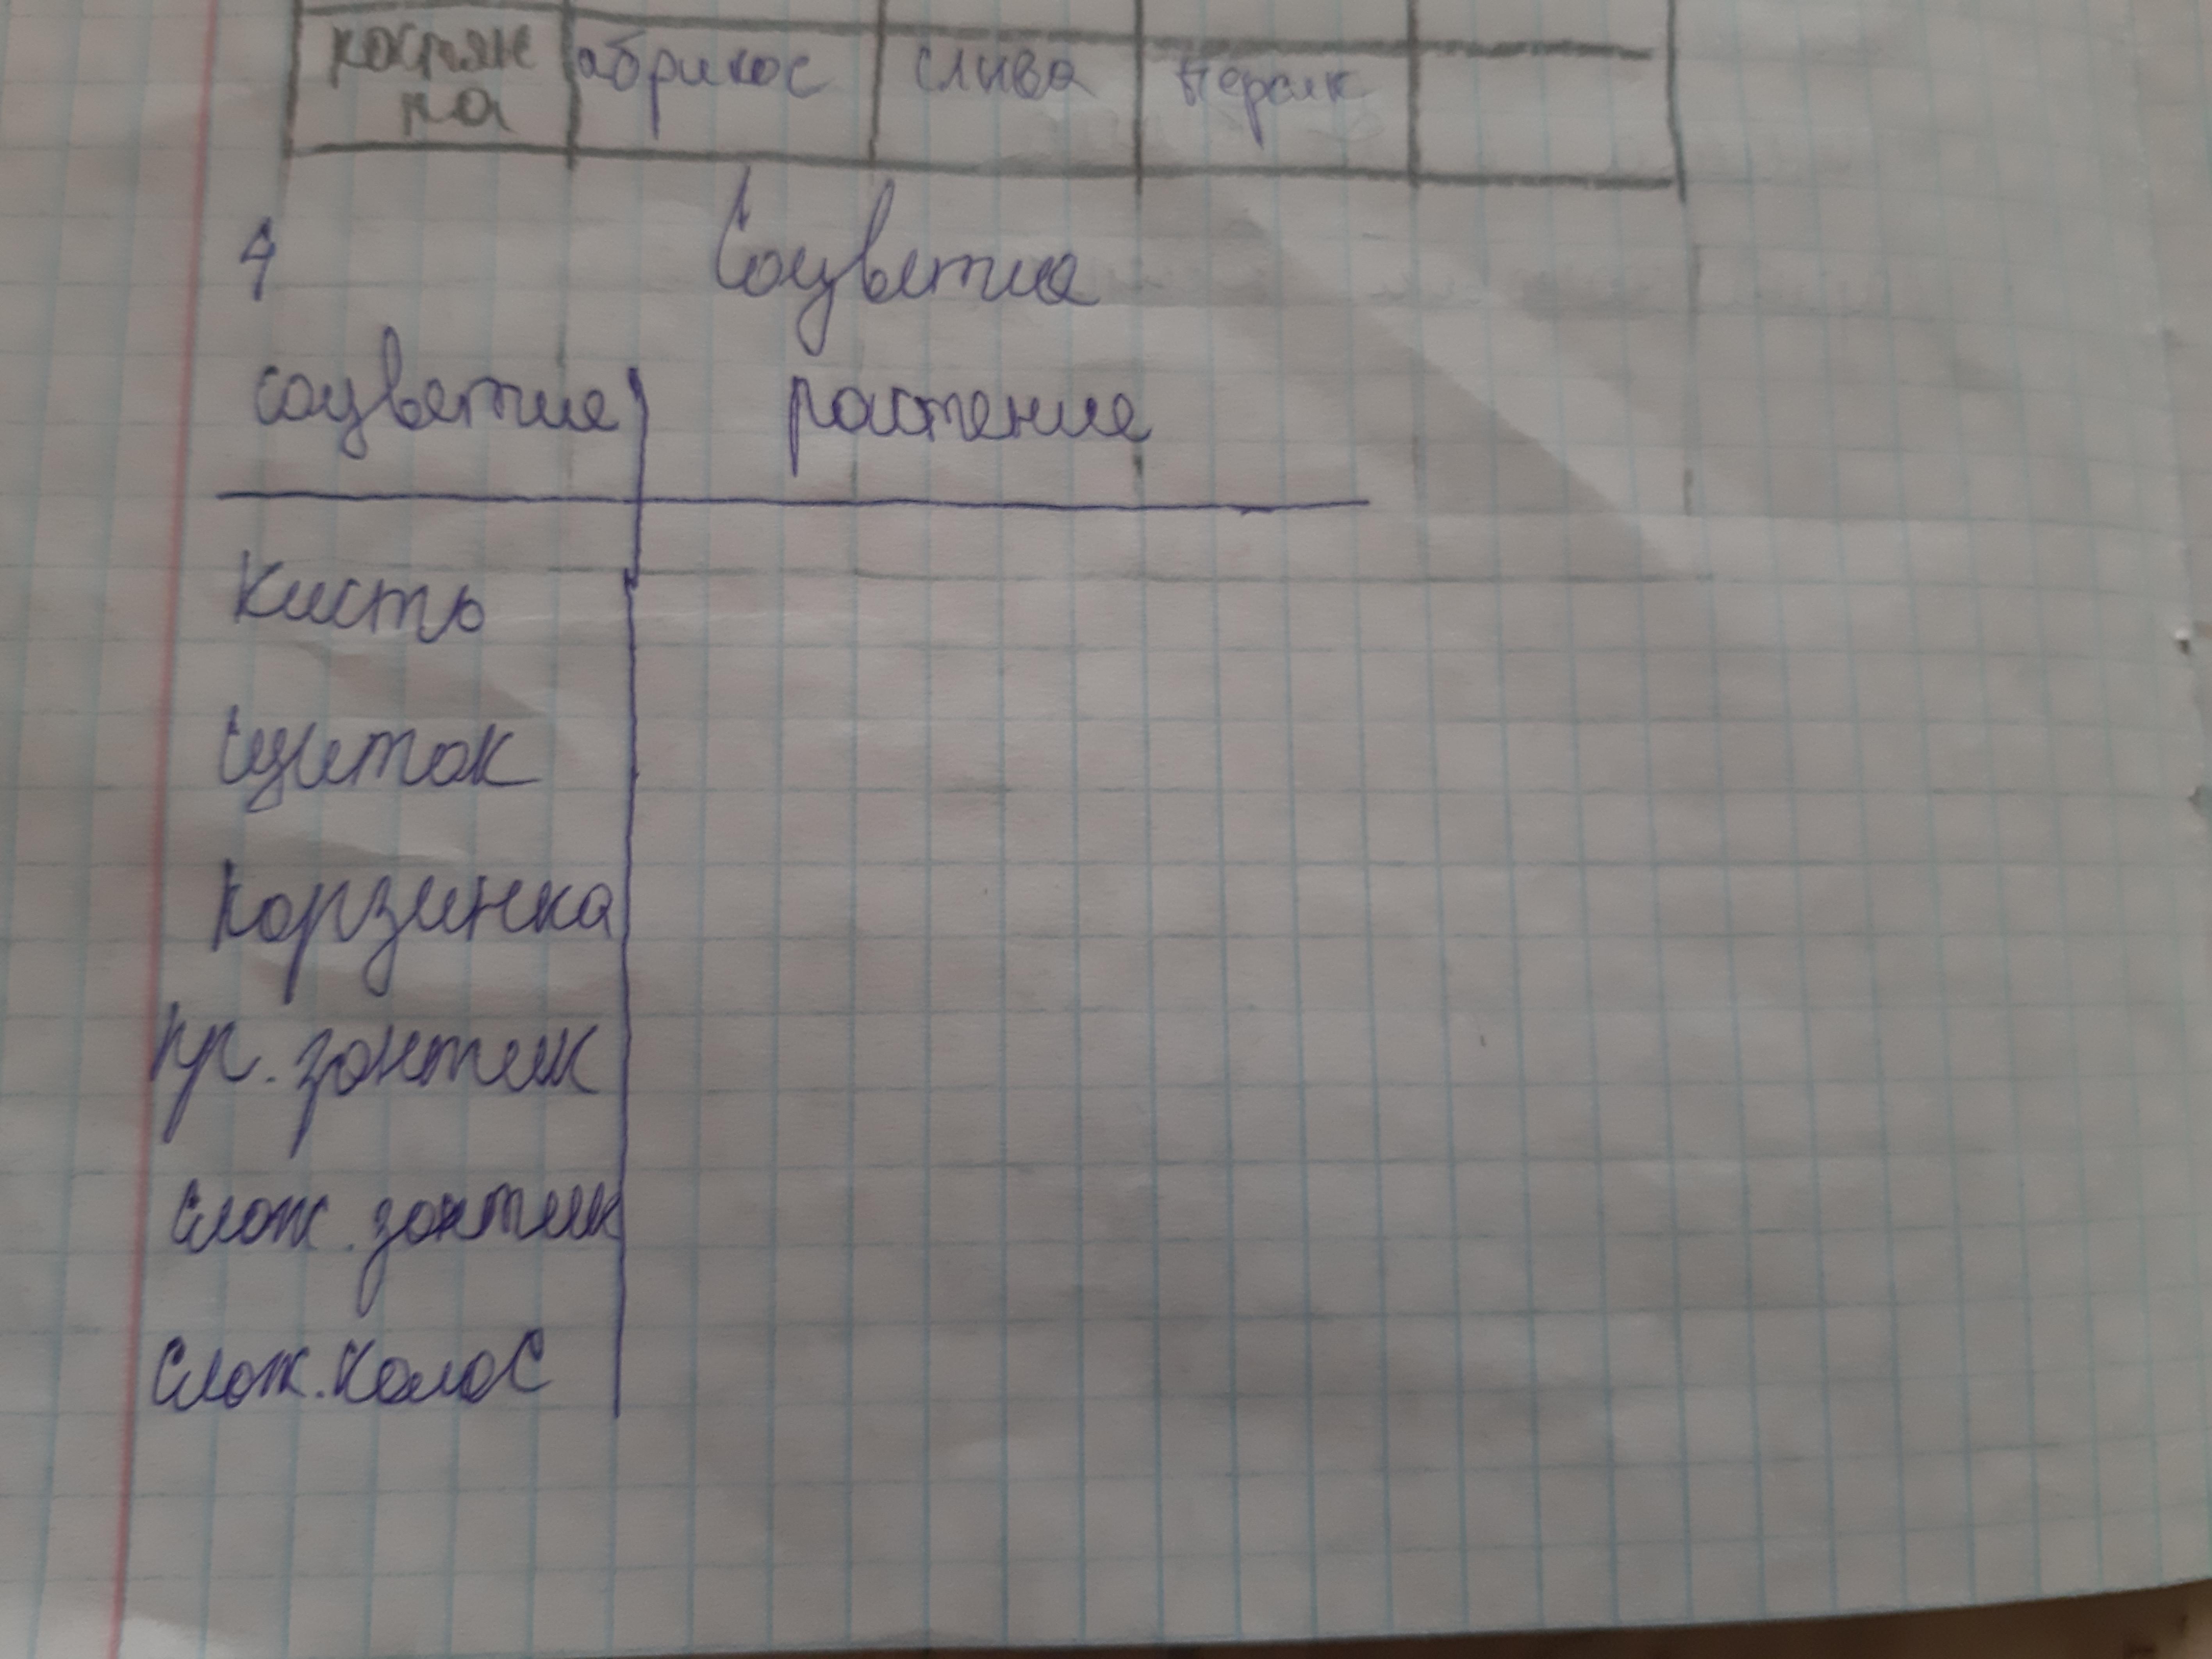 костян абрикос слива персик
ка
4 Соцветие
соцветие растение
Кисть
Щиток
Корзинка
Пр. зонтик
Слож. зонтик
Слож. Колос